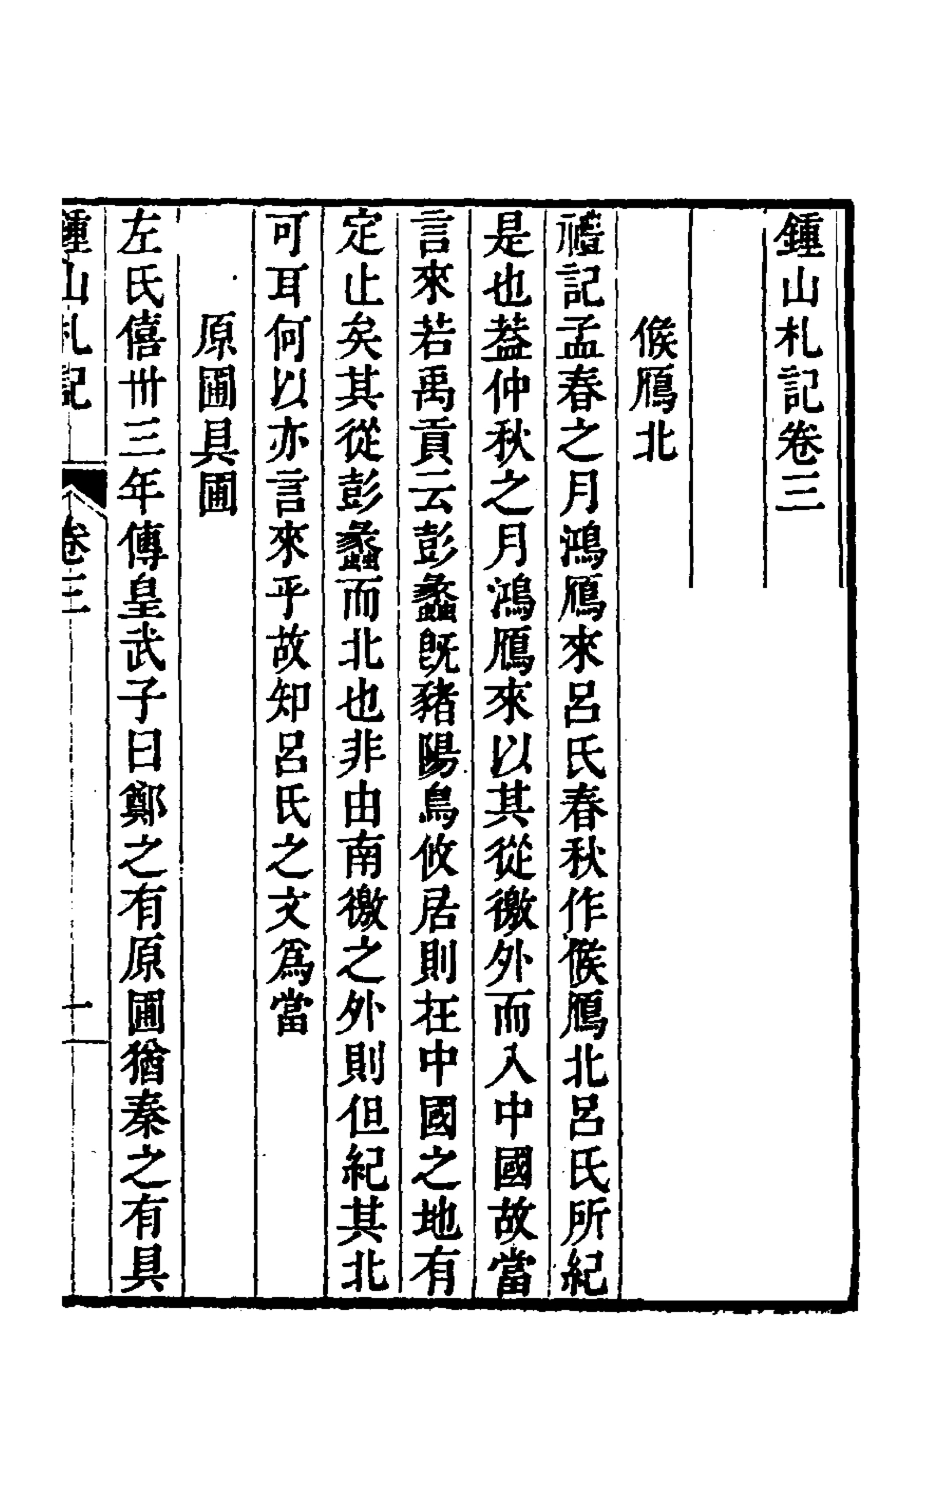 鍾山札記卷三
候鴈北
禮記孟春之月鴻鴈來呂氏春秋作候鴈北呂氏所紀
是也葢仲秋之月鴻鴈來以其從徼外而入中國故當
言來若禹貢云彭蠡旣豬陽鳥攸居則在中國之地有
定止矣其從彭蠡而北也非由南徼之外則但紀其北
可耳何以亦言來乎故知呂氏之文爲當
原圃具圃
左氏僖卅三年傳皇武子曰鄭之有原圃猶秦之有具
鍾山札記
卷三
一